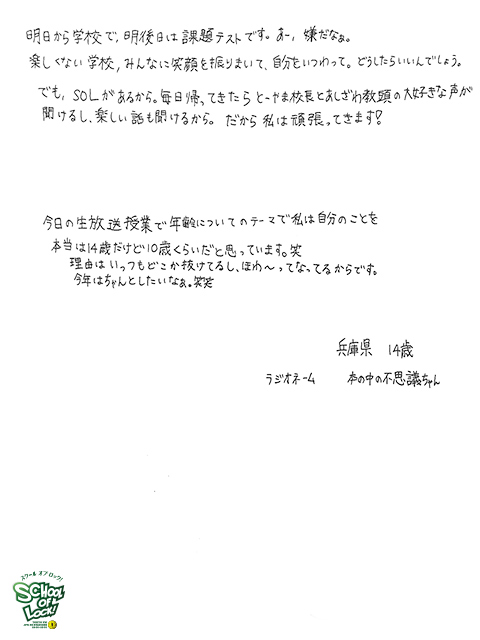 明日から学校で、明後日は課題テストです。あー、嫌だなぁ。
楽しくない学校、みんなに笑顔を振りまいて、自分をいつわって。どうしたらいいんでしょう。
でも、SOLがあるから。毎日帰ってきたらとーやま校長とあしざわ教頭の大好きな声が
聞けるし、楽しい話も聞けるから。だから私は頑張ってきます!
今日の生放送授業で年齢についてのテーマで私は自分のことを
本当は14歳だけど10歳くらいだと思っています。笑
理由はいっつもどこか抜けてるし、ほわ〜ってなってるからです。
今年はちゃんとしたいなぁ。笑笑
兵庫県 14歳
ラジオネーム 本の中の不思議ちゃん
スクールオブロック!
SCHOOL
OF
LOCK!